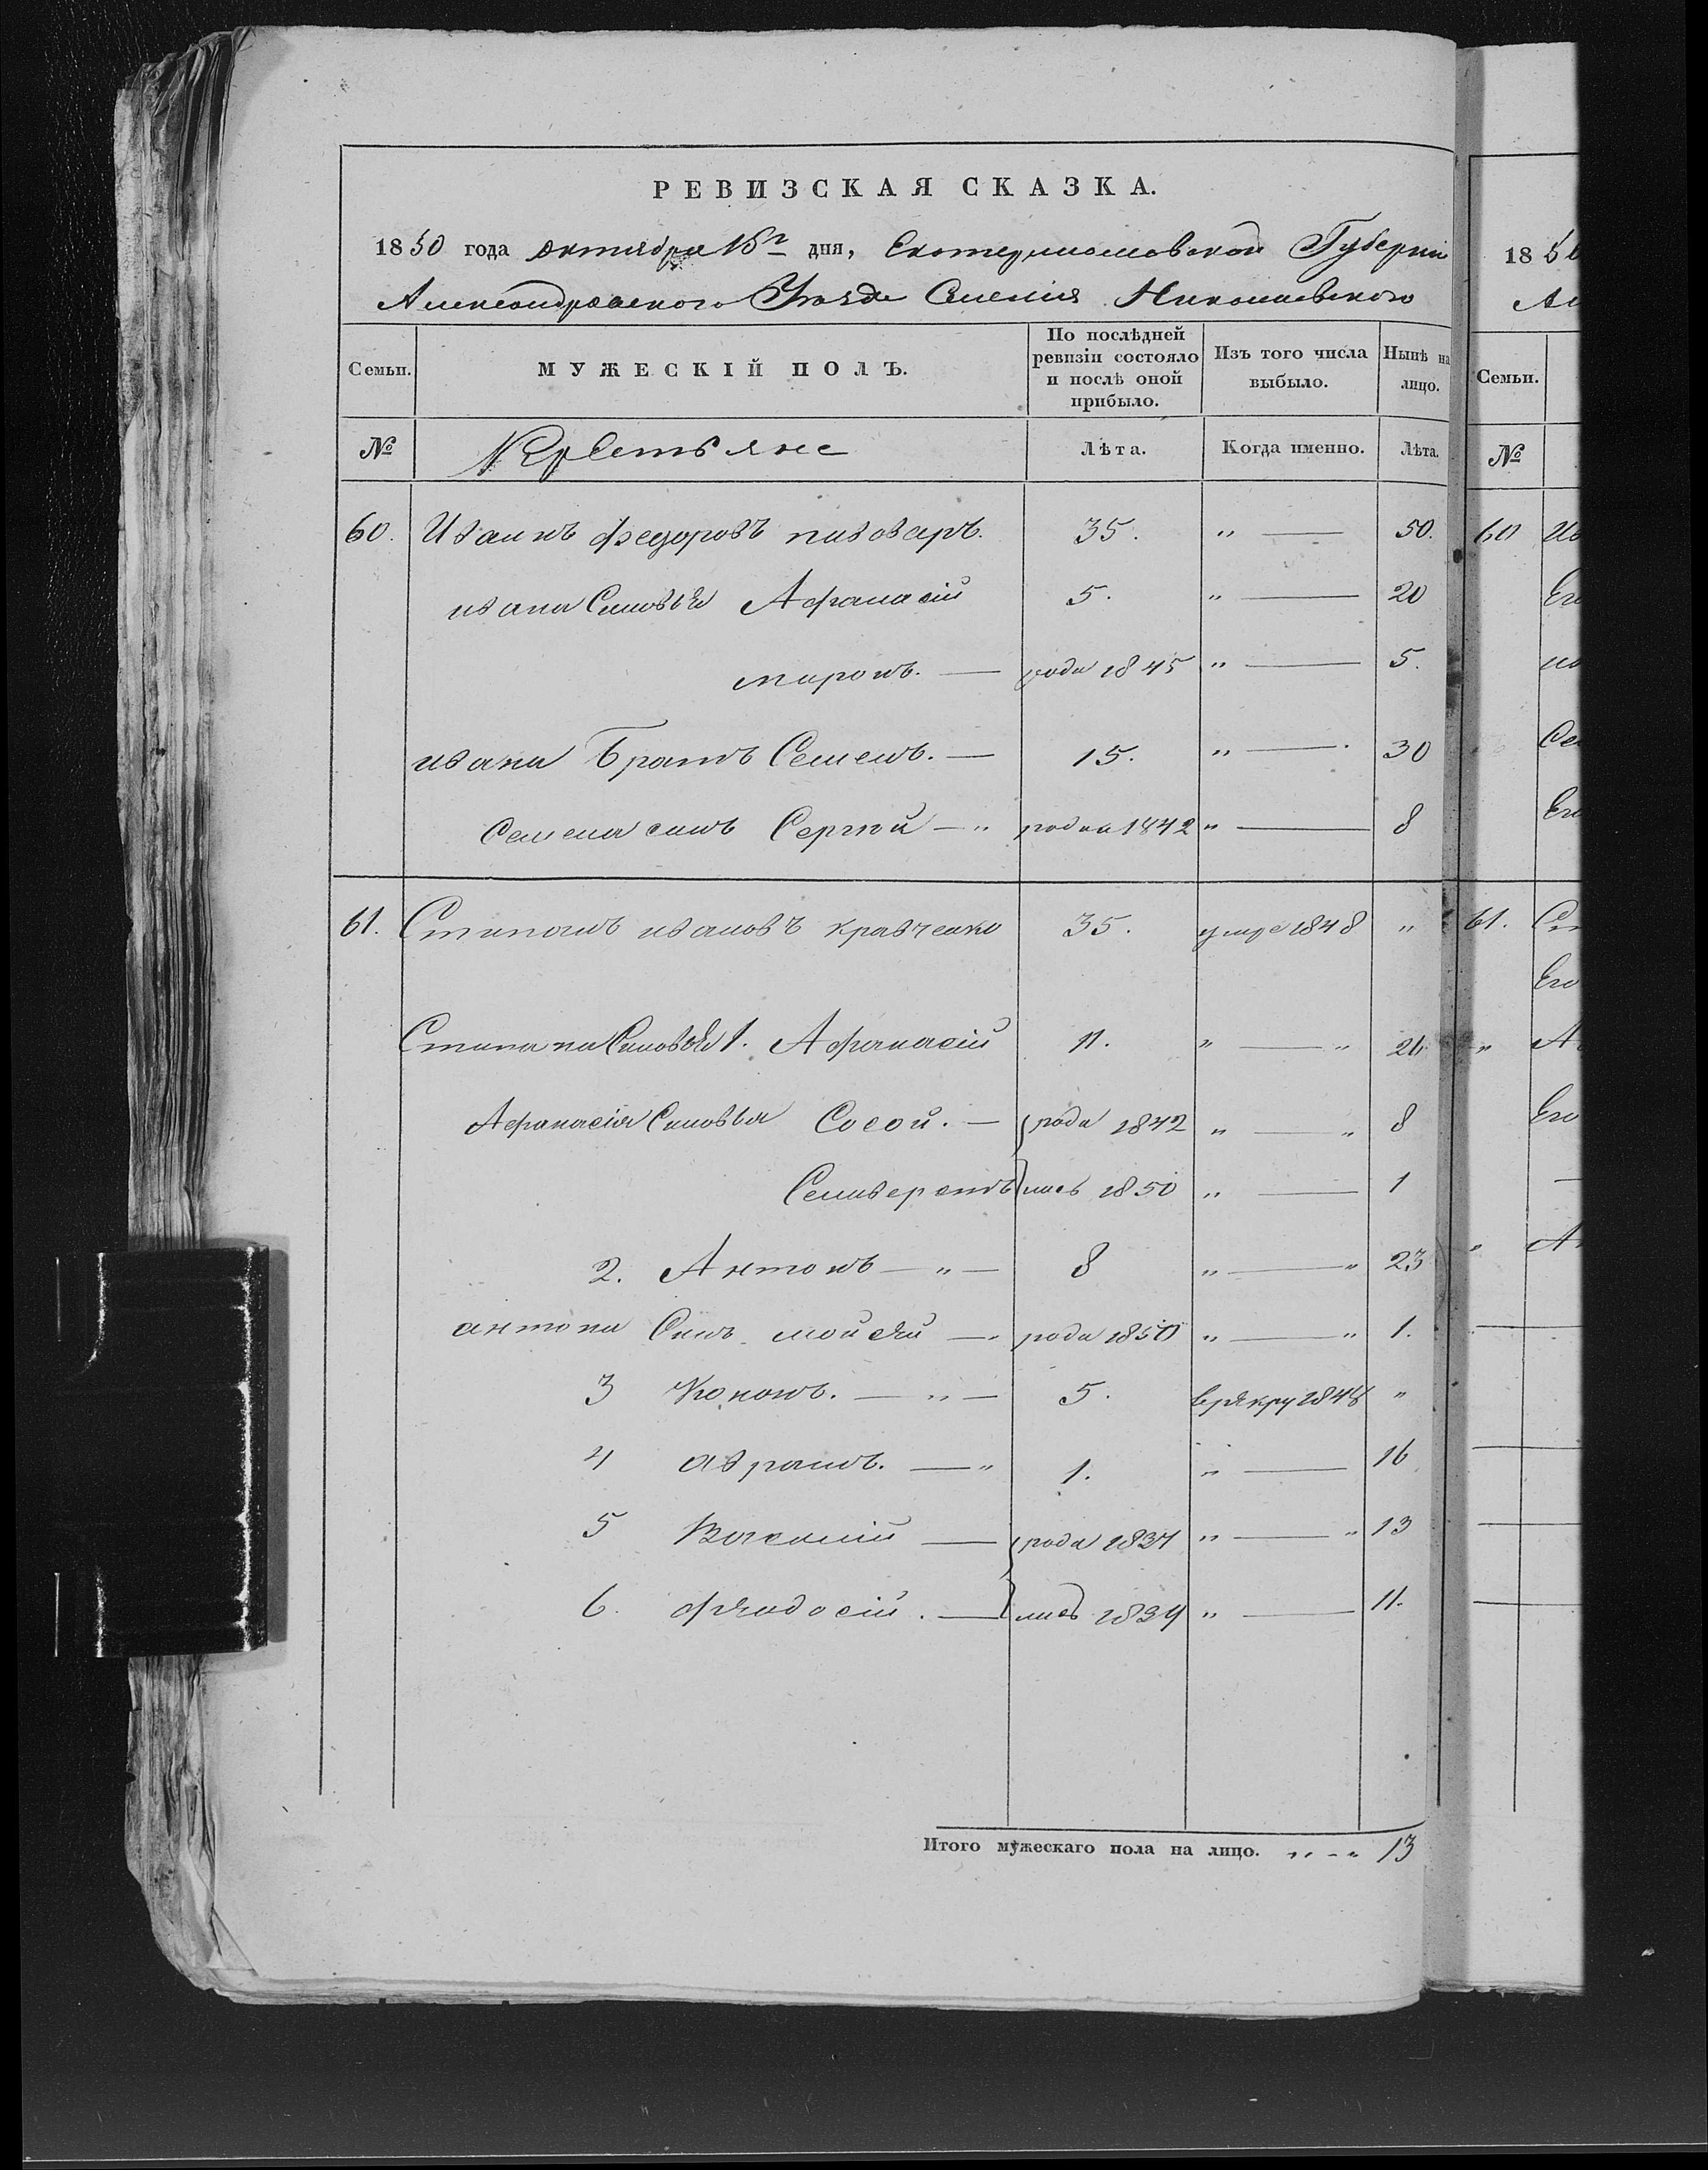 РЕВИЗСКАЯ СКАЗКА.
1850 года октября 15го дня, Екатеринославской Губерніи
Александровского Уезда Селенія Николаевского
Семьи. МУЖЕСКІЙ ПОЛЪ. По послѣдней ревизіи состояло и послѣ оной прибыло. Изъ того числа выбыло. Нынѣ на лицо.
№ Крестьяне Лѣта. Когда именно. Лѣта.
60. Иванъ федоровъ пивоваръ. 35. „ — 50.
ивана Синовья Афанасій 5. „ — 20
миронъ. — рода 1845 „ — 5.
ивана Братъ Семенъ. — 15. „ — 30
Семена синъ Сергѣй — „ родил 1842 „ — 8
61. Стипанъ ивановъ кравченко 35. умре 1848 „
Стипана Синовья 1. Афанасій 11. „ — „ 26
Афанасія Синовья Сосой. — рода 1842 „ — „ 8
Селиверстъ лись 1850 „ — 1
2. Антонъ — „ — 8 „ — „ 23
антона Синъ мойсей — рода 1850 „ — „ 1.
3 Кононъ. — „ — 5. врекру 1848 „
4 аврамъ. — „ 1. „ — 16
5 Василий — рода 1837 „ — „ 13
6. феодосій. — лись 1839 „ — 11.
Итого мужескаго пола на лицо. „ - „ 13
18 50
Семьи.
№
60
61.